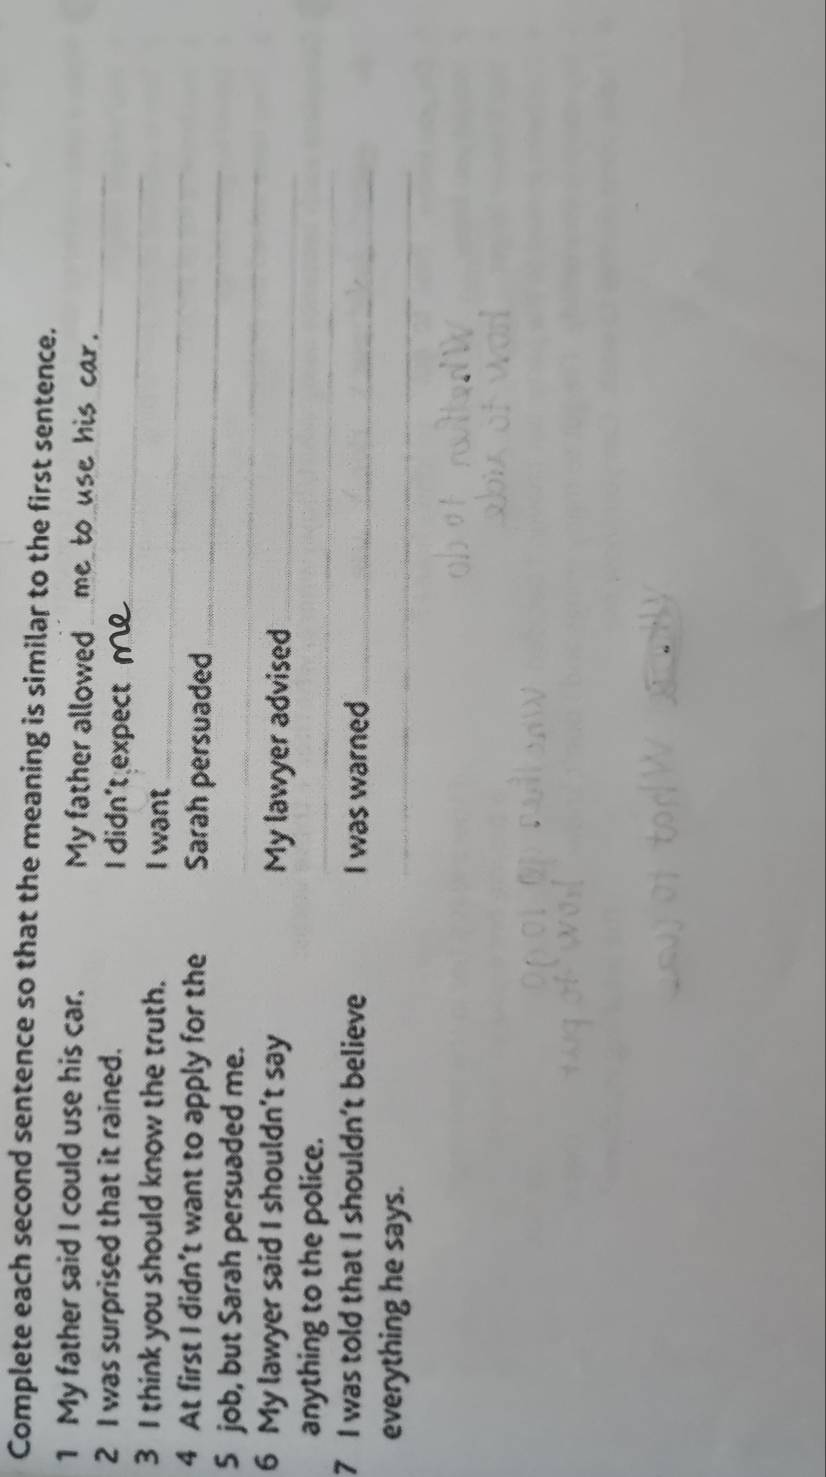 Complete each second sentence so that the meaning is similar to the first sentence.
1 My father said I could use his car. My father allowed me to use his car.
2 I was surprised that it rained. I didn't expect me
3 I think you should know the truth. I want
4 At first I didn't want to apply for the Sarah persuaded
5 job, but Sarah persuaded me.
6 My lawyer said I shouldn't say My lawyer advised
anything to the police.
7 I was told that I shouldn't believe I was warned
everything he says.